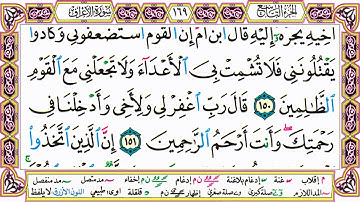 سورة الأعراف ١٦٩ الجزء التاسع
أخيه يجره إليه قال ابن أم إن القوم استضعفوني وكادوا
يقتلونني فلا تشمت بي الأعداء ولا تجعلني مع القوم
الظلمين ١٥٠ قال رب اغفر لي ولأخي وأدخلنا في
رحمتك وأنت أرحم الرحمين ١٥١ إن الذين اتخذوا